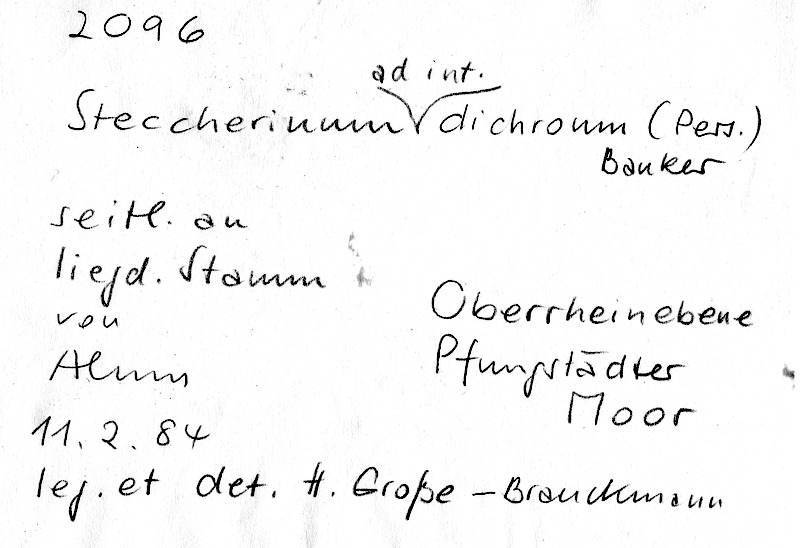 2096
ad int.
Steccherinum dichroum (Pers.)
Banker
seitl. an
liegd. Stamm
von
Alnus
11. 2. 84
leg. et det. H. Große-Brauckmann
Oberrheinebene
Pfungstädter
Moor